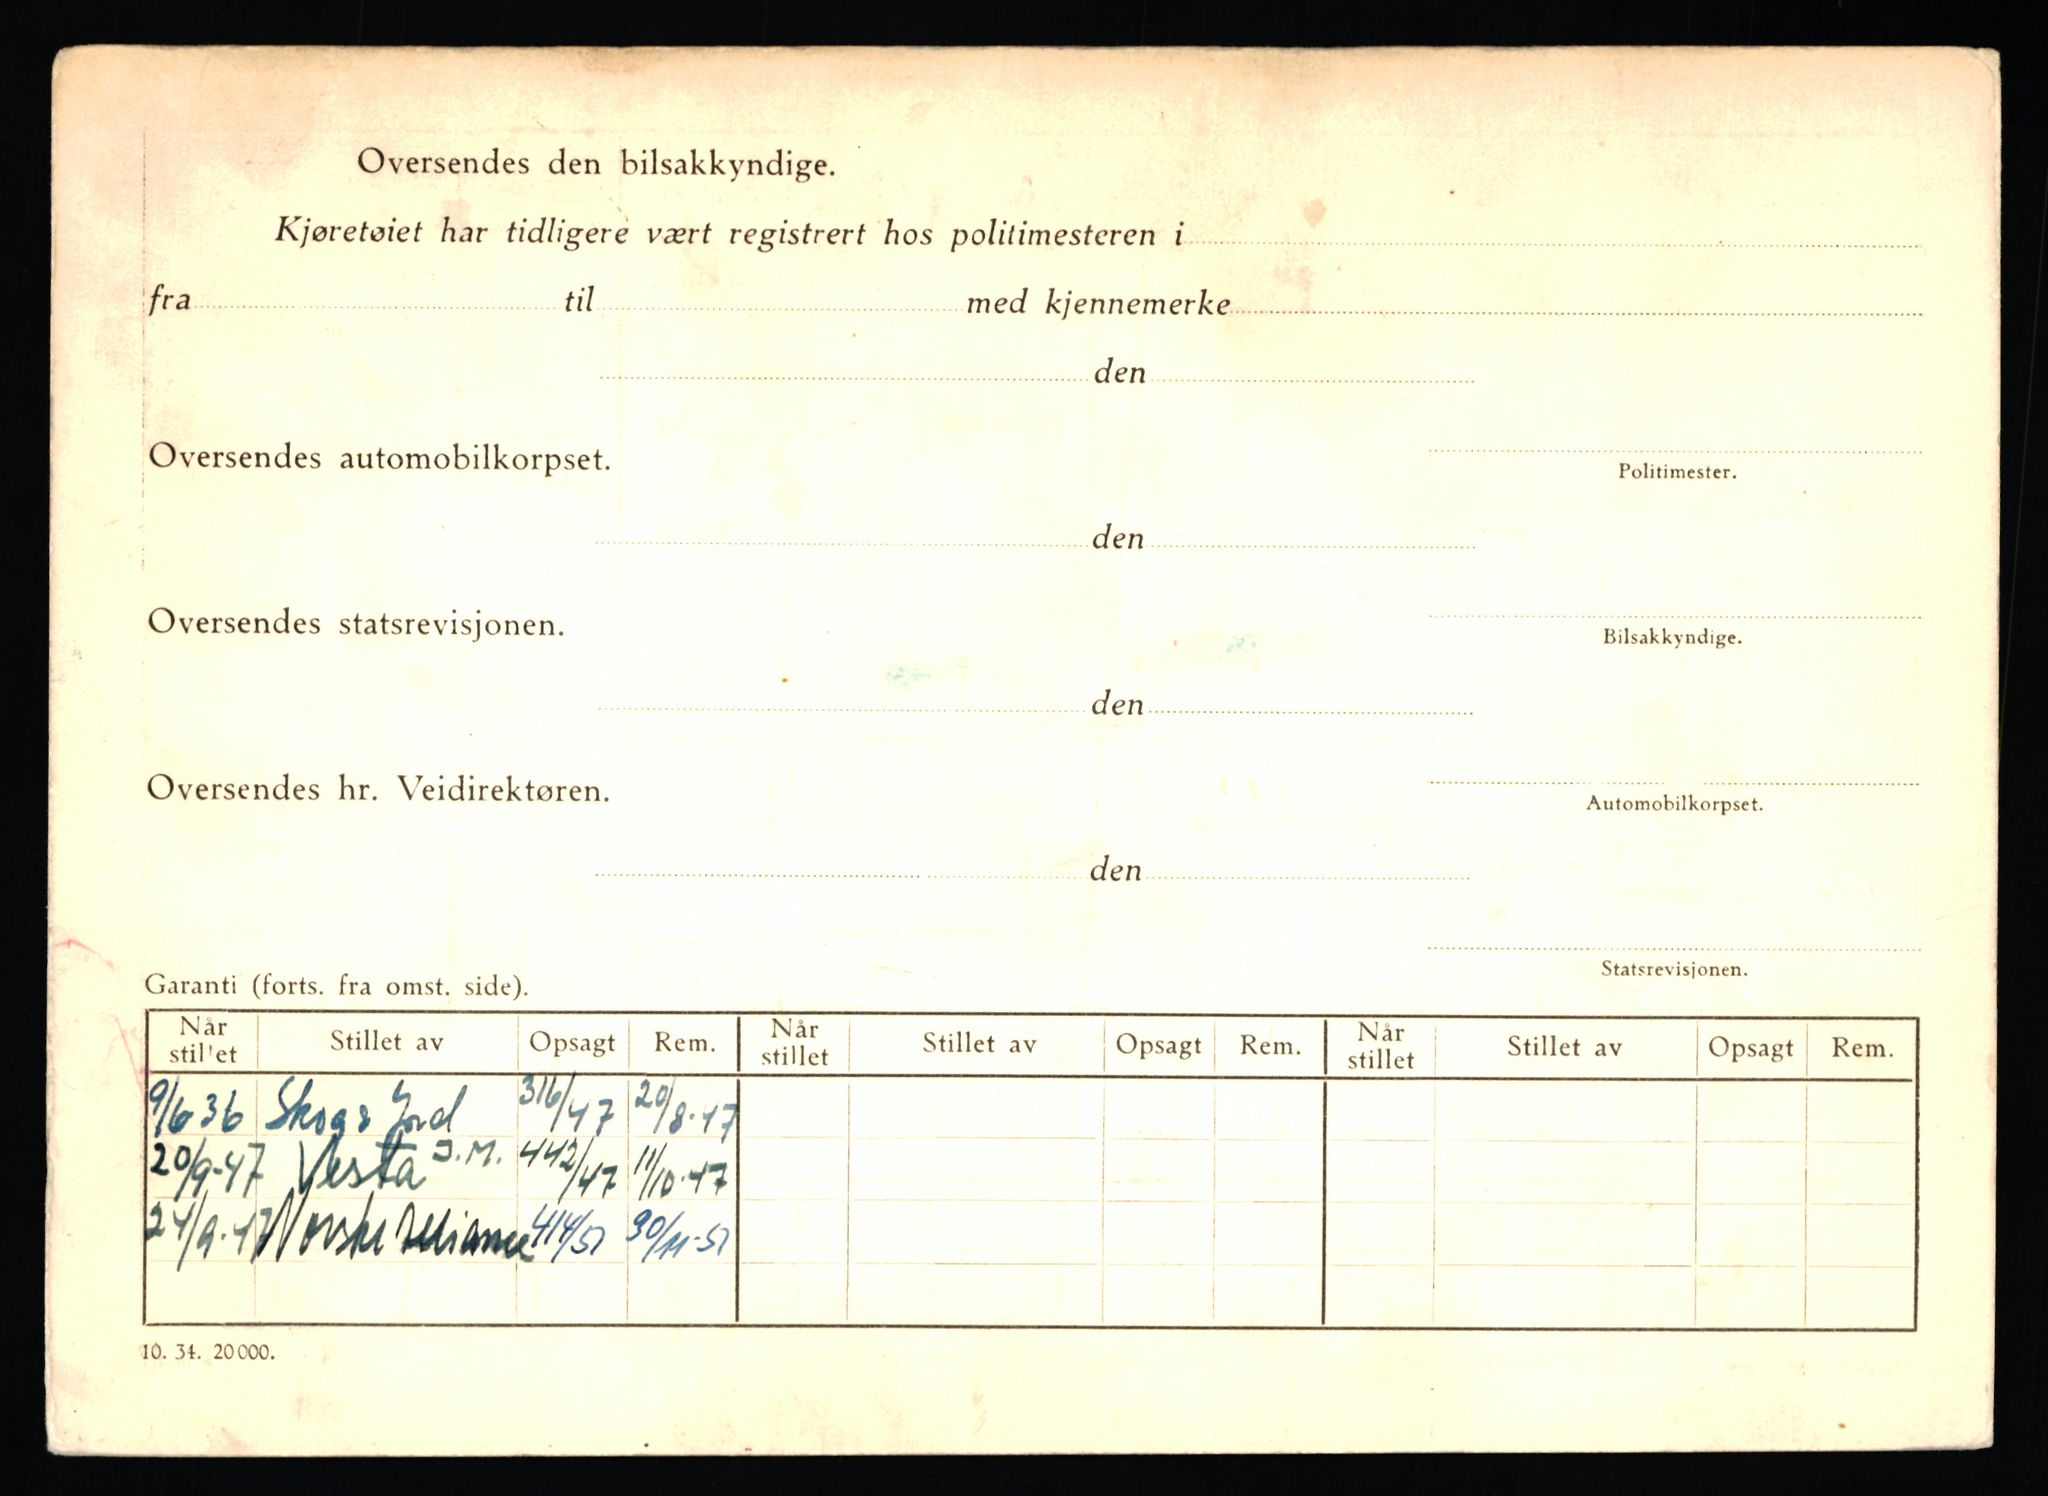 Oversendes den bilsakkyndige.
Kjøretøiet har tidligere vært registrert hos politimesteren i
fra til med kjennemerke
den
Oversendes automobilkorpset.
Politimester.
den
Oversendes statsrevisjonen.
Bilsakkyndige.
den
Oversendes hr. Veidirektøren.
Automobilkorpset.
den
Statsrevisjonen.
Garanti (forts. fra omst. side).
Når stillet Stillet av Opsagt Rem. Når stillet Stillet av Opsagt Rem. Når stillet Stillet av Opsagt Rem.
9/6 36 Skog & Jord 316/47 20/8-47
20/9-47 Vesta J.M. 442/47 11/10-47
24/9-47 Norske Alliance 414/51 30/11-51
10. 34. 20000.